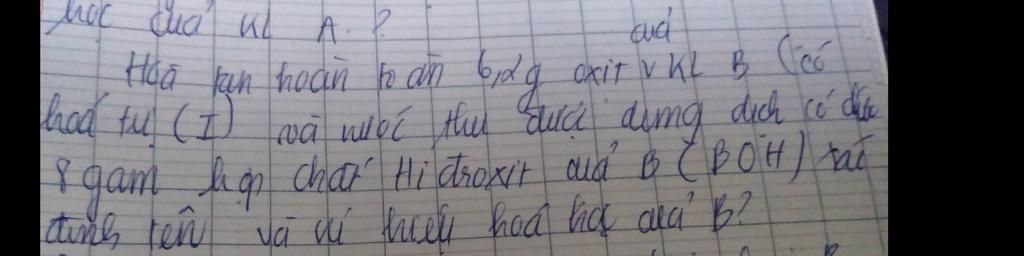 học của KL A.?
của
Hoà tan hoàn toàn 6,2g oxit KL B (có
hoá trị (I) và nước thu được dung dịch có chứa
8 gam hợp chất Hiđroxit của B (BOH) xác
định tên và kí hiệu hoá học của B?